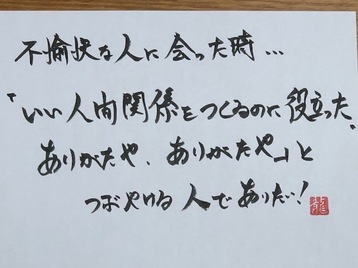 不愉快な人に会った時…
"いい人間関係をつくるのに役立った"
ありがたや、ありがたや」と
つぶやける人でありたい!